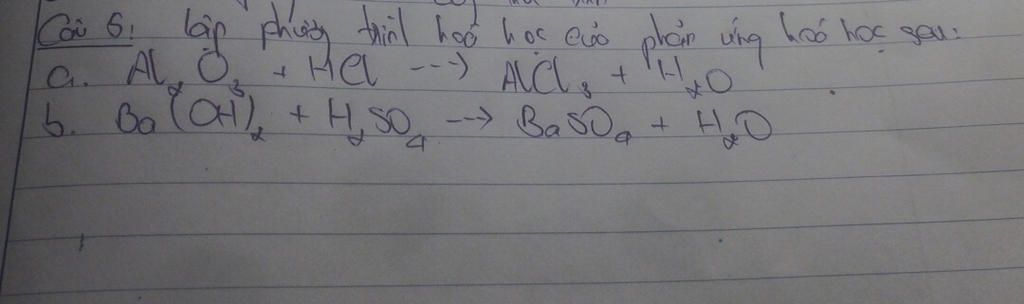 Câu 6: Lập phương trình hoá học của phản ứng hoá học sau:
a. Al₂O₃ + HCl ---> AlCl₃ + H₂O
b. Ba(OH)₂ + H₂SO₄ ---> BaSO₄ + H₂O